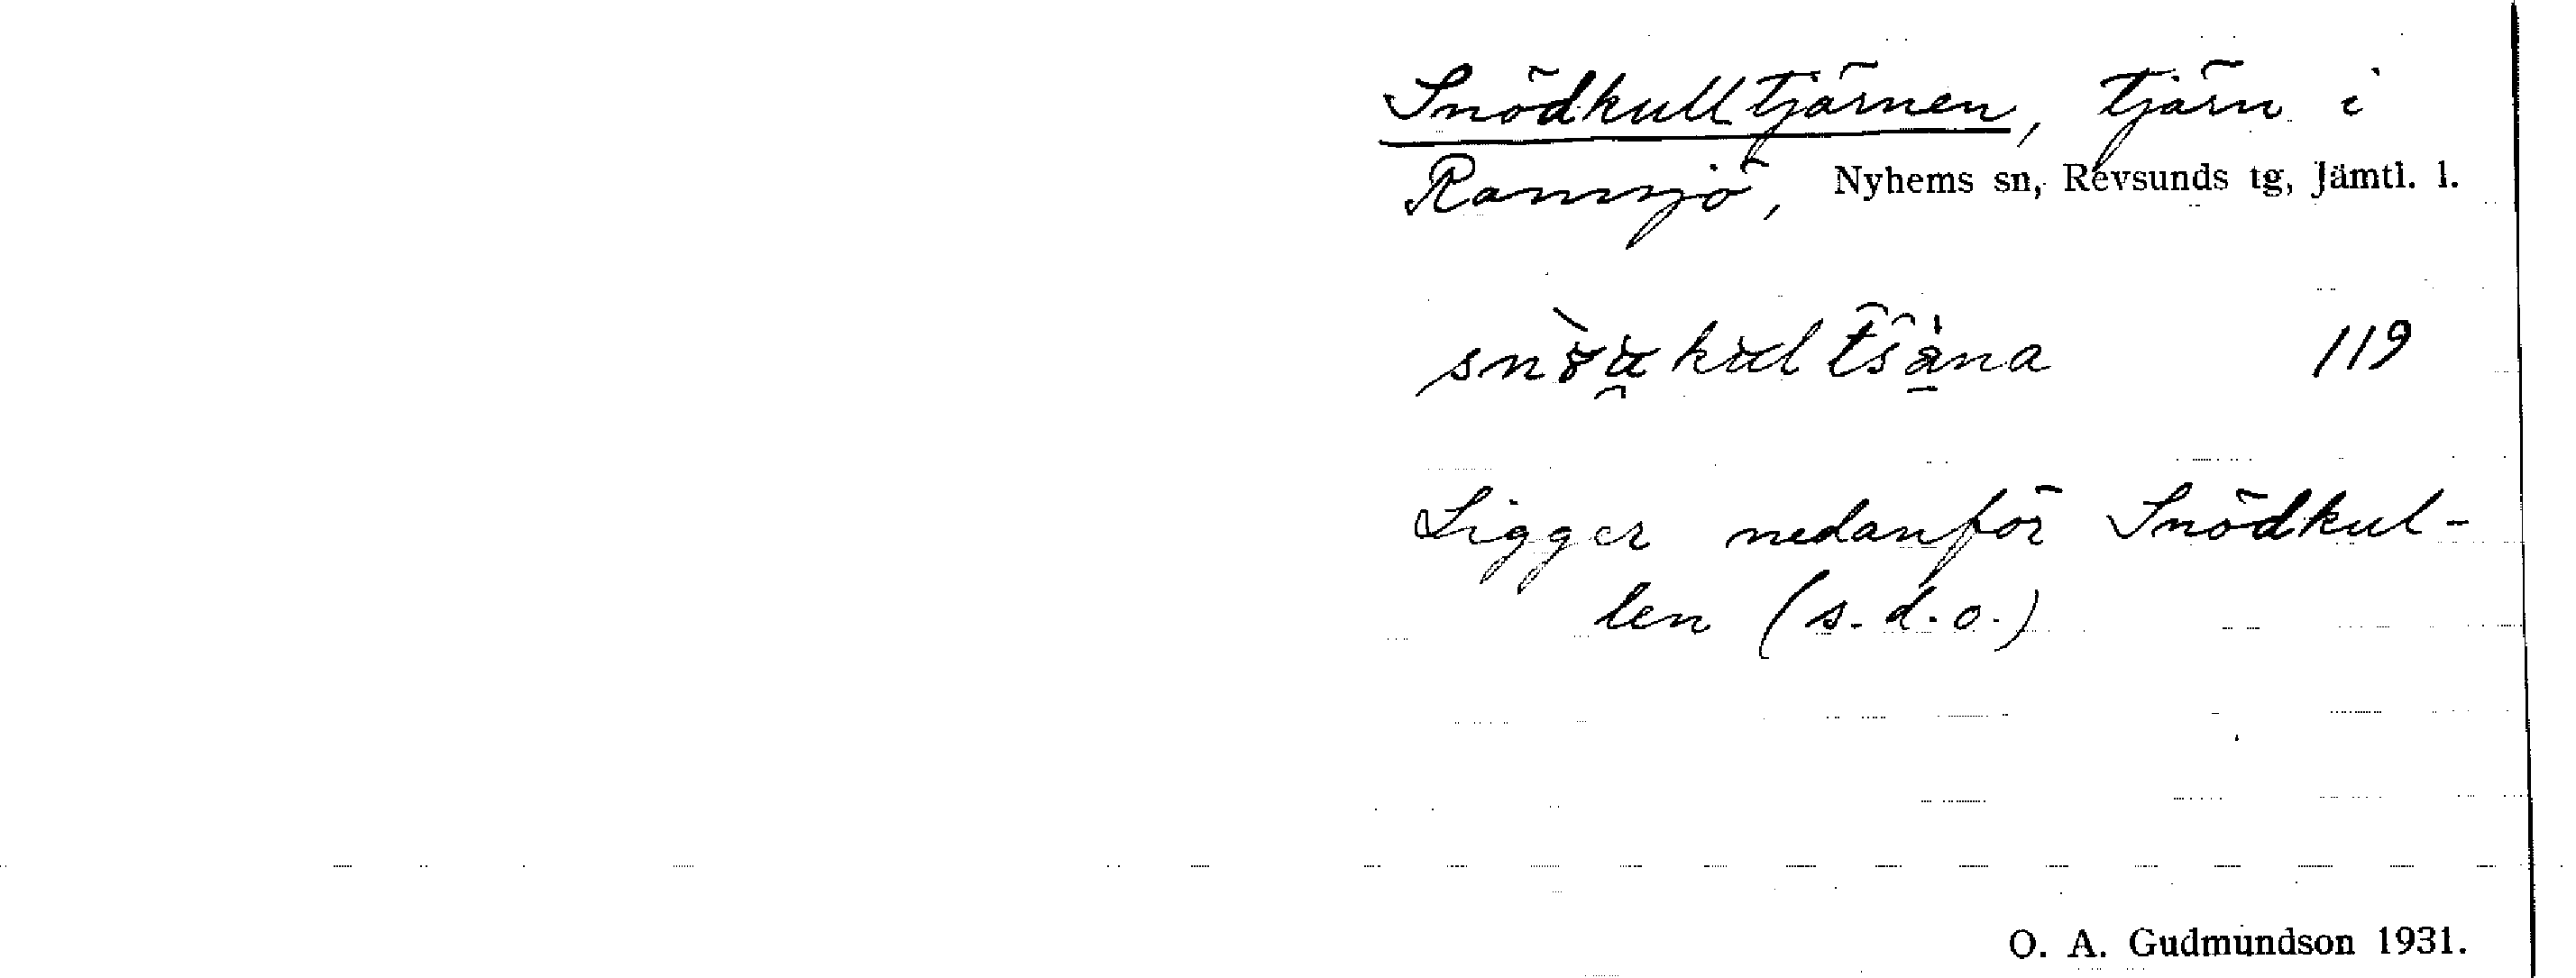 Snödkulltjärnen, tjärn i
Ramsjö, Nyhems sn, Revsunds tg, Jämtl. l.
119
Ligger nedanför Snödkul-
len (s.d.o.)
O. A. Gudmundson 1931.